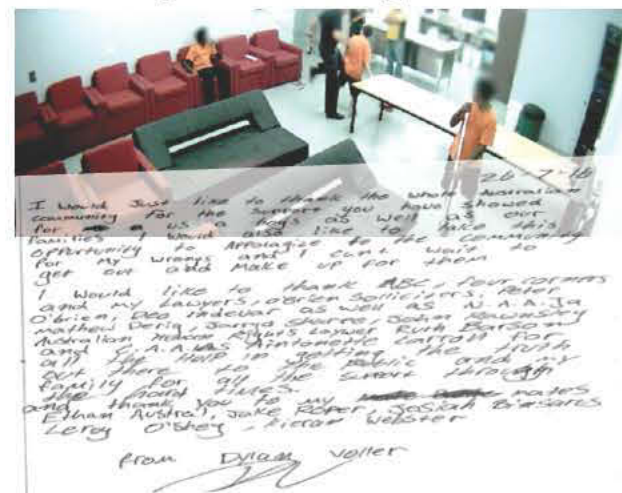 26-7-16
I would Just like to thank the whole Australian
community for the support you have showed
for us as boys as well as our
families I would also like to take this
opportunity to Appolagize to the community
for my wrongs and I cant wait to
get out and make up for them
I would like to thank ABC, four corners
and my Lawyers, O'brien Sollicitors, Peter
O'brien, Dev indevar as well as N.A.A.Ja
mathew Derig, Jarryd Sharro, John Rawnsley
Australian Human Rights Lawyer Ruth Barson
and C.A.A.L.A.S Antonette Carroll for
all the Help in getting the truth
out there to the Public and my
family for all the support through
the hard times.
and thank you to my mates
Ethan Austral, Jake Roper, Josiah Binsaris
Leroy O'Shey, Kieran Webster
from Dylan Voller